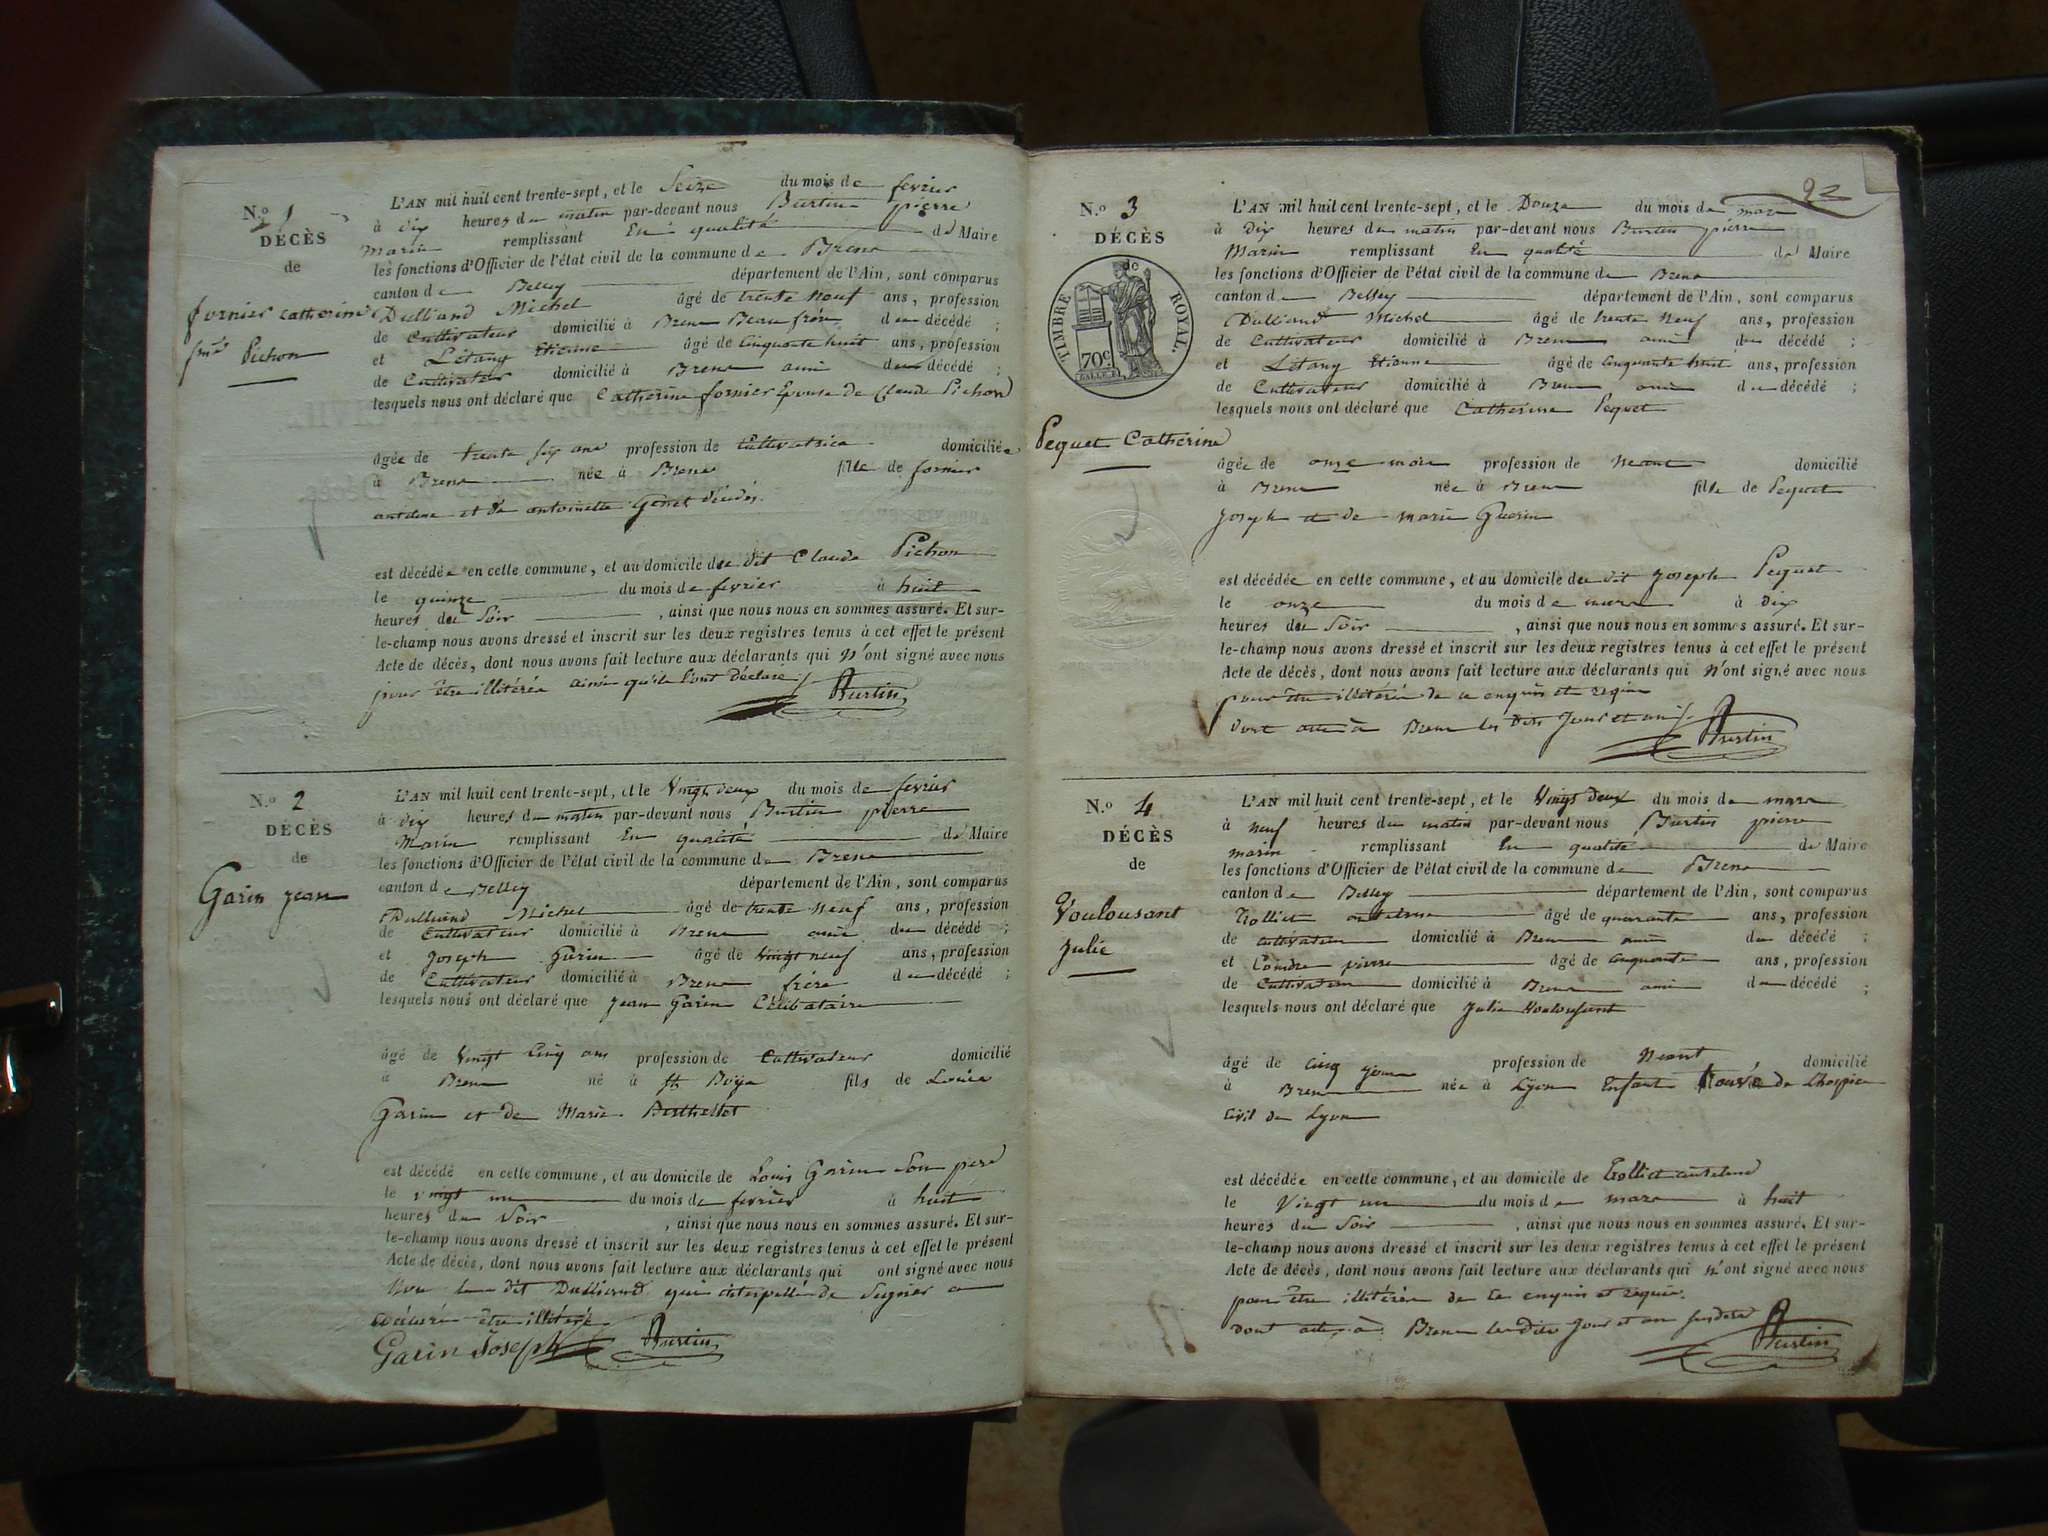 N.o 1
DÉCÈS
de
fornier catherine
fme Pichon
L'AN mil huit cent trente-sept, et le Seize du mois de fevrier
à dix heures du matin par-devant nous Burtin pierre
Marin remplissant En qualité de Maire
les fonctions d'Officier de l'état civil de la commune de Brens
canton de Belley département de l'Ain, sont comparus
Dulliand Michel âgé de trente neuf ans, profession
de Cultivateur domicilié à Brens Beau frère du décédé ;
et Létang Etienne âgé de cinquante huit ans, profession
de Cultivateur domicilié à Brens ami du décédé ;
lesquels nous ont déclaré que Catherine fornier Epouse de Claude Pichon
âgée de trente six ans profession de Cultivatrice domiciliée
à Brens née à Brens fille de fornier
antoine et de antoinette Genet décédés.
est décédée en cette commune, et au domicile du dit Claude Pichon
le quinze du mois de fevrier à huit
heures du Soir , ainsi que nous nous en sommes assuré. Et sur-
le-champ nous avons dressé et inscrit sur les deux registres tenus à cet effet le présent
Acte de décès, dont nous avons fait lecture aux déclarants qui n'ont signé avec nous
pour être illitérés ainsi qu'ils l'ont déclaré
Burtin
N.o 2
DÉCÈS
de
Garin jean
L'AN mil huit cent trente-sept, et le Vingt deux du mois de fevrier
à dix heures du matin par-devant nous Burtin pierre
Marin remplissant En qualité de Maire
les fonctions d'Officier de l'état civil de la commune de Brens
canton de Belley département de l'Ain, sont comparus
Dulliand Michel âgé de trente neuf ans, profession
de Cultivateur domicilié à Brens ami du décédé ;
et Joseph Garin âgé de vingt neuf ans, profession
de Cultivateur domicilié à Brens frère du décédé ;
lesquels nous ont déclaré que jean Garin Célibataire
âgé de vingt cinq ans profession de Cultivateur domicilié
à Brens né à fils de Louis
Garin et de Marie Berthellot
est décédé en cette commune, et au domicile de Louis Garin Son pere
le vingt un du mois de fevrier à huit
heures du Soir , ainsi que nous nous en sommes assuré. Et sur-
le-champ nous avons dressé et inscrit sur les deux registres tenus à cet effet le présent
Acte de décès, dont nous avons fait lecture aux déclarants qui ont signé avec nous
Non le dit Dulliand qui interpellé de Signer a
déclaré être illitéré
Garin Joseph Burtin
93
N.o 3
DÉCÈS
de
TIMBRE ROYAL.
70c.
Pequet Catherine
L'AN mil huit cent trente-sept, et le Douze du mois de mars
à Dix heures du matin par-devant nous Burtin pierre
Marin remplissant En qualité de Maire
les fonctions d'Officier de l'état civil de la commune de Brens
canton de Belley département de l'Ain, sont comparus
Dulliand Michel âgé de trente Neuf ans, profession
de Cultivateur domicilié à Brens ami du décédé ;
et Létang Etienne âgé de cinquante huit ans, profession
de Cultivateur domicilié à Brens ami du décédé ;
lesquels nous ont déclaré que Catherine Pequet
âgée de onze mois profession de Neant domicilié
à Brens née à Brens fille de Pequet
Joseph et de marie Guerin
est décédée en cette commune, et au domicile du dit Joseph Pequet
le onze du mois de mars à dix
heures du Soir , ainsi que nous nous en sommes assuré. Et sur-
le-champ nous avons dressé et inscrit sur les deux registres tenus à cet effet le présent
Acte de décès, dont nous avons fait lecture aux déclarants qui n'ont signé avec nous
pour être illitérés de ce enquis et requis
Dont acte à Brens les dits Jour et an
Burtin
N.o 4
DÉCÈS
de
Voulousant
Julie
L'AN mil huit cent trente-sept, et le Vingt Deux du mois de mars
à Neuf heures du matin par-devant nous Burtin pierre
marin remplissant En qualité de Maire
les fonctions d'Officier de l'état civil de la commune de Brens
canton de Belley département de l'Ain, sont comparus
Trolliet antelme âgé de quarante ans, profession
de cultivateur domicilié à Brens ami du décédé ;
et Coindre pierre âgé de cinquante ans, profession
de Cultivateur domicilié à Brens ami du décédé ;
lesquels nous ont déclaré que Julie Voulousant
âgé de cinq jours profession de Neant domicilié
à Brens née à Lyon Enfant trouvé de L'hospice
Civil de Lyon
est décédée en cette commune, et au domicile de Trolliet antelme
le Vingt un du mois de mars à huit
heures du Soir , ainsi que nous nous en sommes assuré. Et sur-
le-champ nous avons dressé et inscrit sur les deux registres tenus à cet effet le présent
Acte de décès, dont nous avons fait lecture aux déclarants qui n'ont signé avec nous
pour être illitérés de ce enquis et requis.
Dont acte, à Brens les Dits Jour et an susdits
Burtin